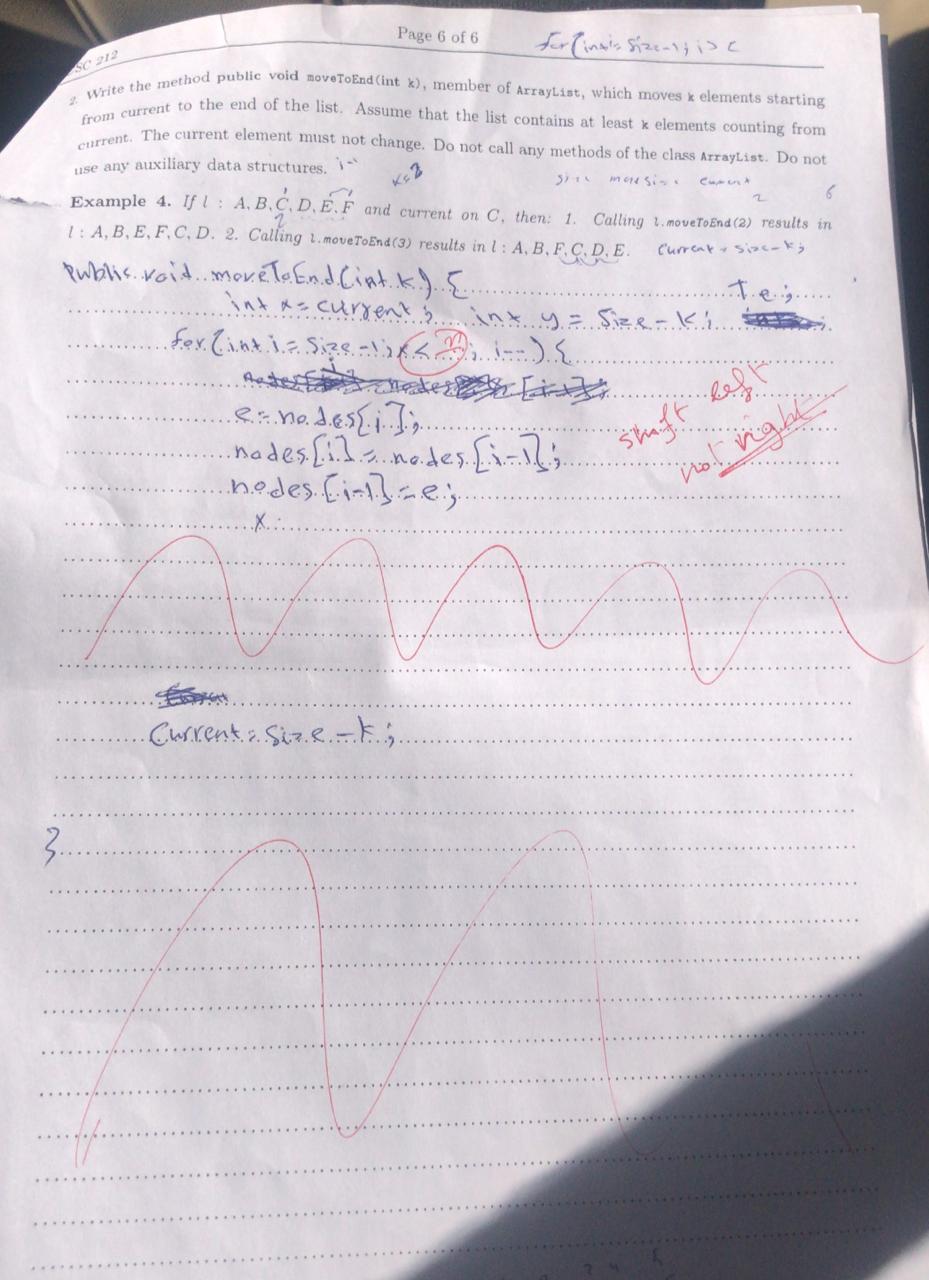 CSC 212
Page 6 of 6
for(int i= Size-1; i> c
2. Write the method public void moveToEnd(int k), member of ArrayList, which moves k elements starting
from current to the end of the list. Assume that the list contains at least k elements counting from
current. The current element must not change. Do not call any methods of the class ArrayList. Do not
use any auxiliary data structures.
size maxsize current
2 6
Example 4. If l : A, B, C, D, E, F and current on C, then: 1. Calling l.moveToEnd(2) results in
l : A, B, E, F, C, D. 2. Calling l.moveToEnd(3) results in l : A, B, F, C, D, E. Current = size-k;
Public void moveToEnd(int k) {
int x= current; int y = Size-k; T e;
for(int i= Size-1; x< ; i--) {
e=nodes[i];
nodes[i] = nodes[i-1];
nodes[i-1] = e;
shift left
not right
x
Current = Size-k;
}